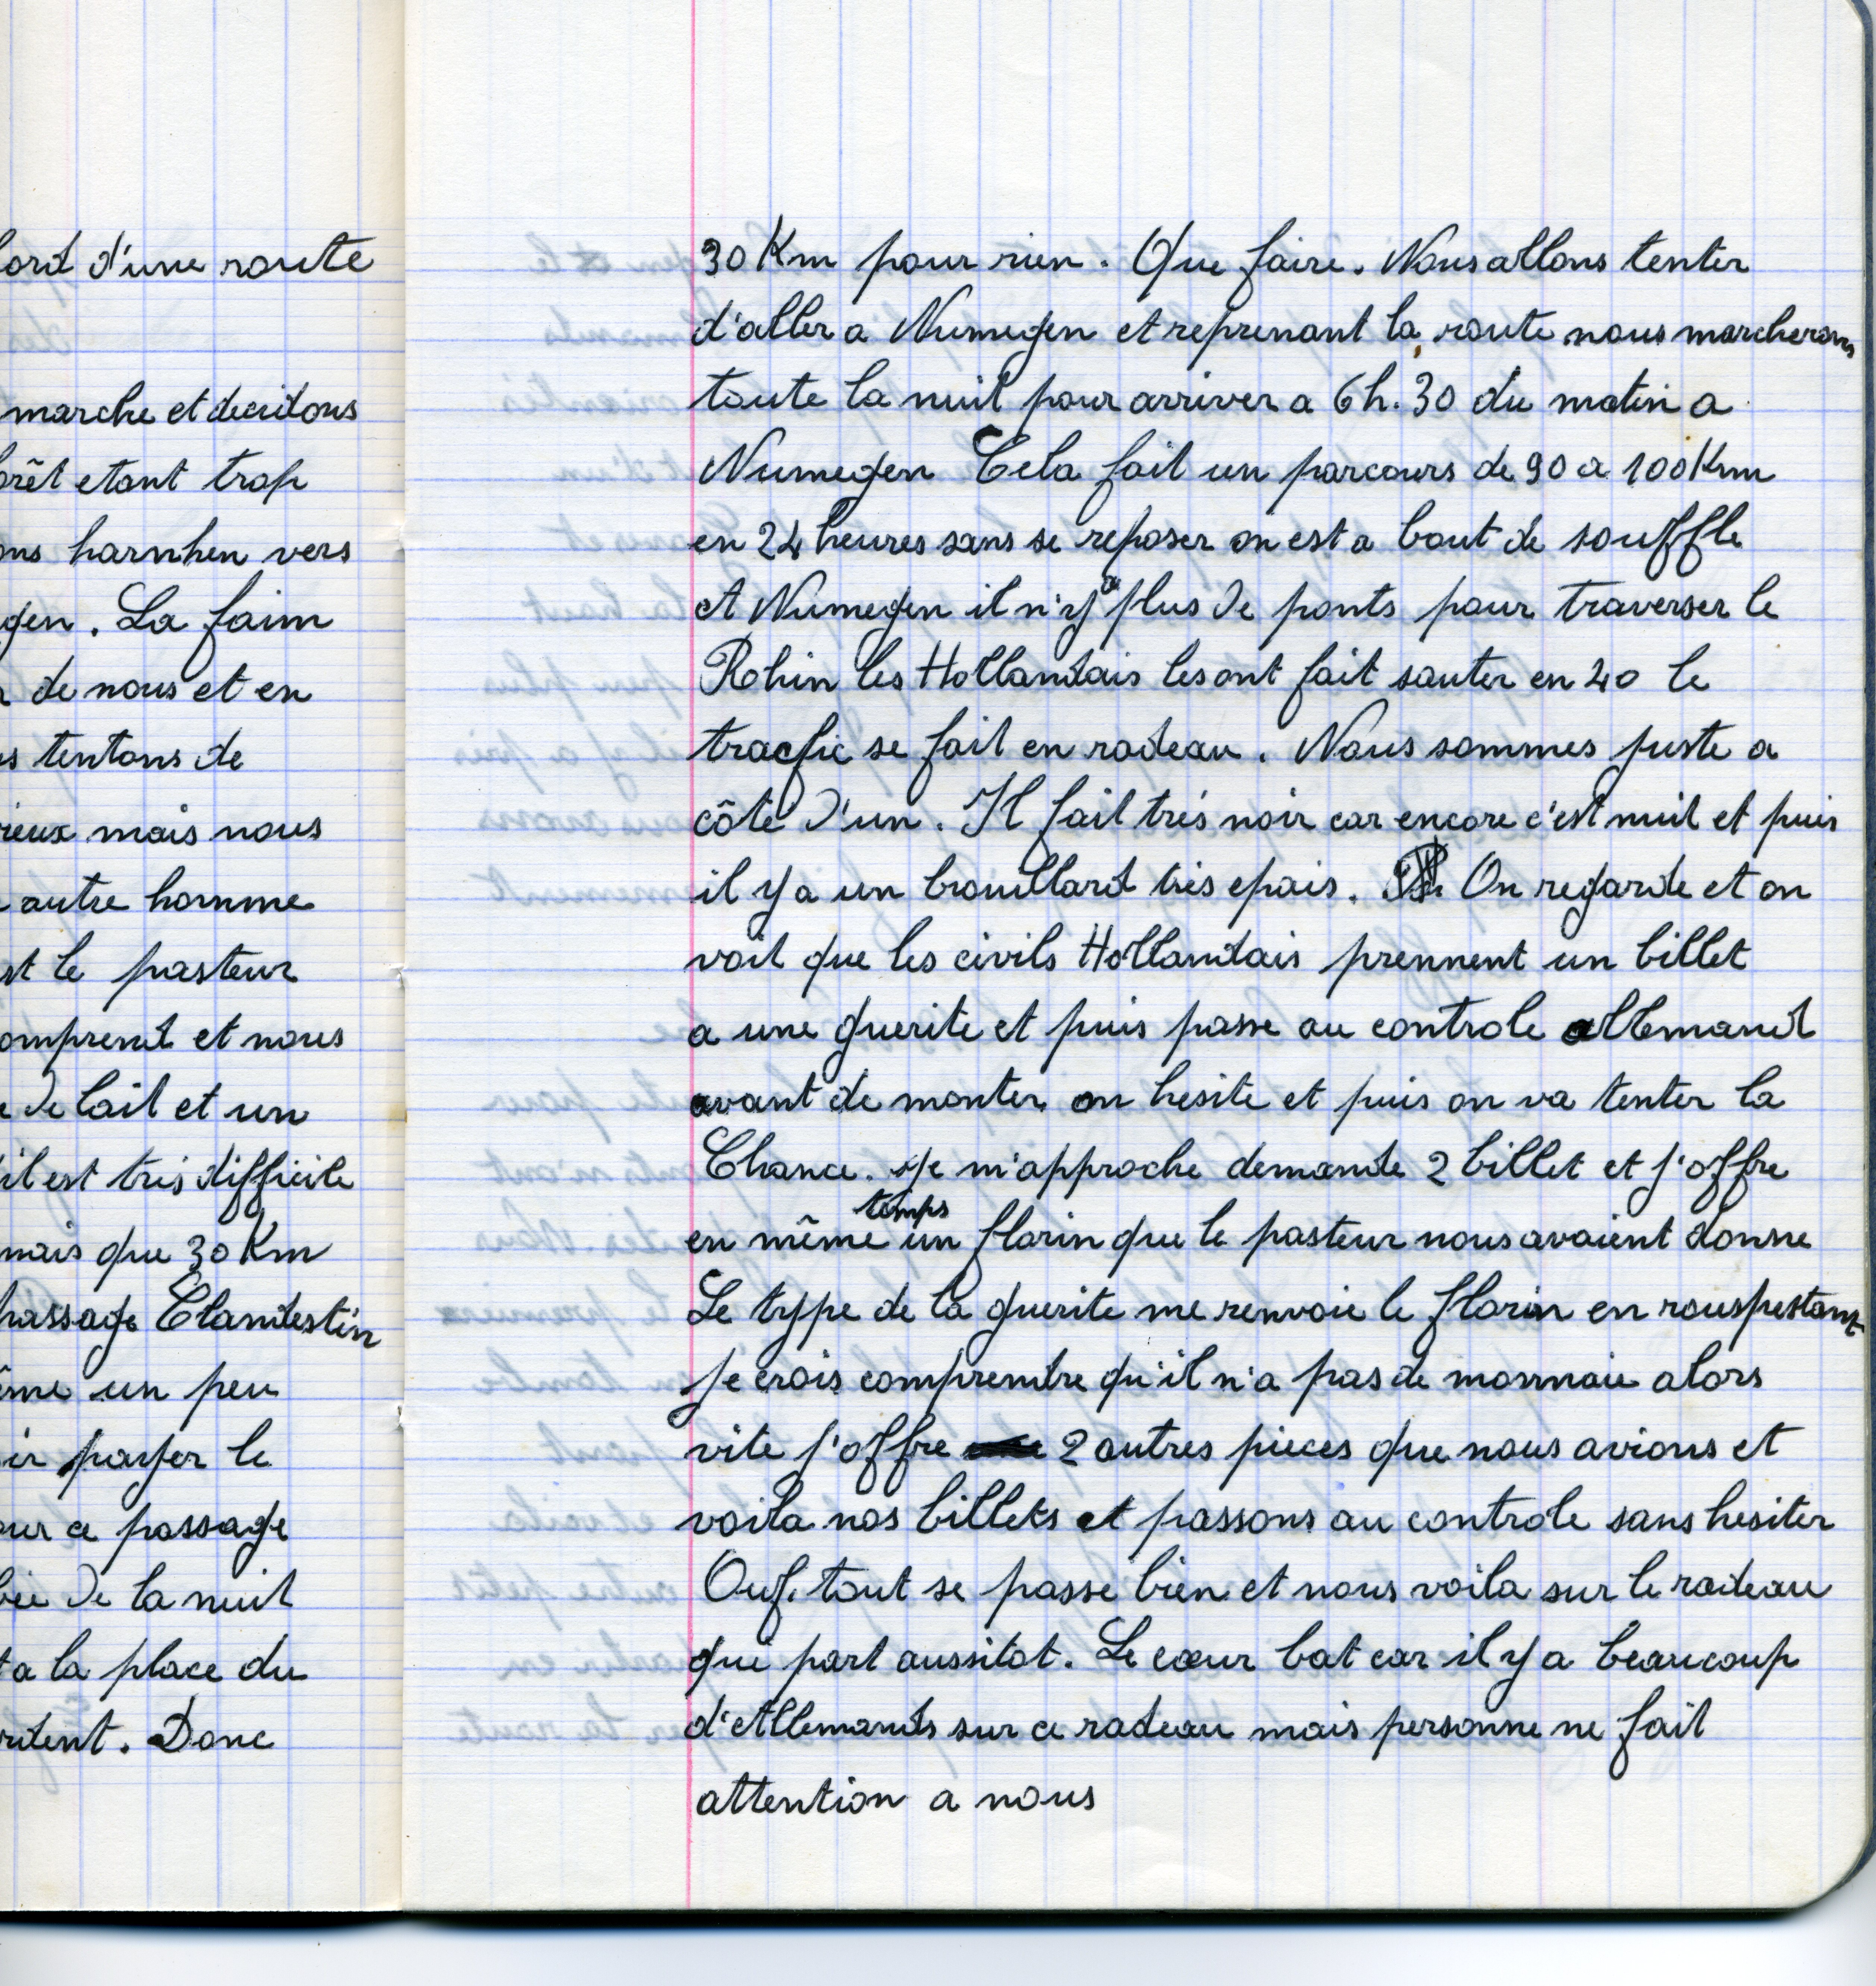 bord d'une route
marche et decidons
orêt etant trop
ons harnhen vers
gen. La faim
de nous et en
s tentons de
rieux mais nous
autre homme
st le pasteur
omprend et nous
de lait et un
il est tres difficile
mais que 30 Km
passage Clandestin
ême un peu
ir payer le
our ce passage
de la nuit
a la place du
rdent. Donc
30 Km pour rien. Que faire. Nous allons tenter
d'aller a Numegen et reprenant la route nous marcherons
toute la nuit pour arriver a 6h.30 du matin a
Numegen Cela fait un parcours de 90 a 100 Km
en 24 heures sans se reposer on est a bout de souffle
A Numegen il n'y a plus de ponts pour traverser le
Rohin les Hollandais les ont fait sauter en 40 le
trafic se fait en radeau. Nous sommes juste a
côté d'un. Il fait trés noir car encore c'est nuit et puis
il y a un brouillard trés epais. On regarde et on
voit que les civils Hollandais prennent un billet
a une guerite et puis passe au controle allemand
avant de monter on hesite et puis on va tenter la
Chance. Je m'approche demande 2 billet et j'offre
en même temps un florin que le pasteur nous avaient donne
Le type de la guerite me renvoie le florin en rouspestant
je crois comprendre qu'il n'a pas de monnaie alors
vite j'offre 2 autres pieces que nous avions et
voila nos billets et passons au controle sans hesiter
Ouf. tout se passe bien et nous voila sur le radeau
qui part aussitot. Le cœur bat car il y a beaucoup
d'Allemands sur ce radeau mais personne ne fait
attention a nous